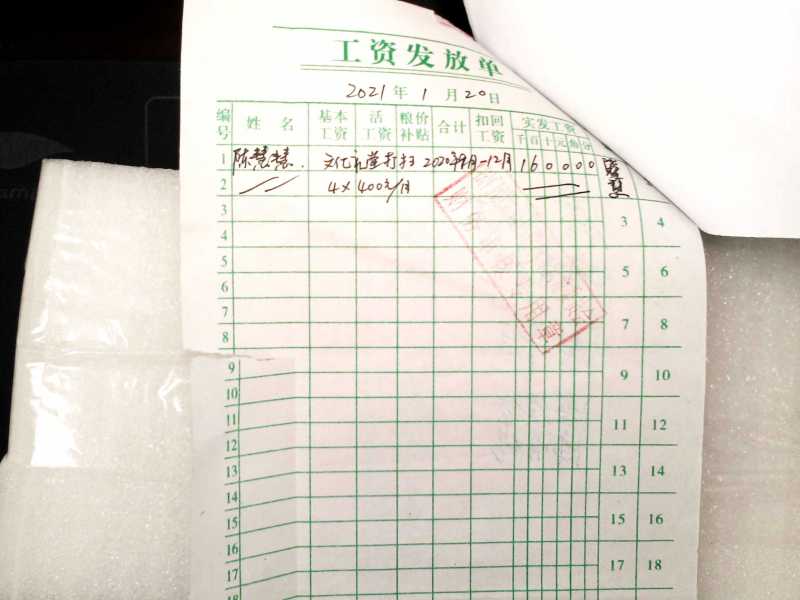 工资发放单
2021年1月20日
编号 姓名 基本工资 活工资 粮价补贴 合计 扣回工资 实发工资
千百十元角分
1 陈慧慧 文化礼堂打扫 2020年9月-12月 160000
2 4×400元/月
3 3 4
4
5 5 6
6
7 7 8
8
9 9 10
10
11 11 12
12
13 13 14
14
15 15 16
16
17 17 18
18